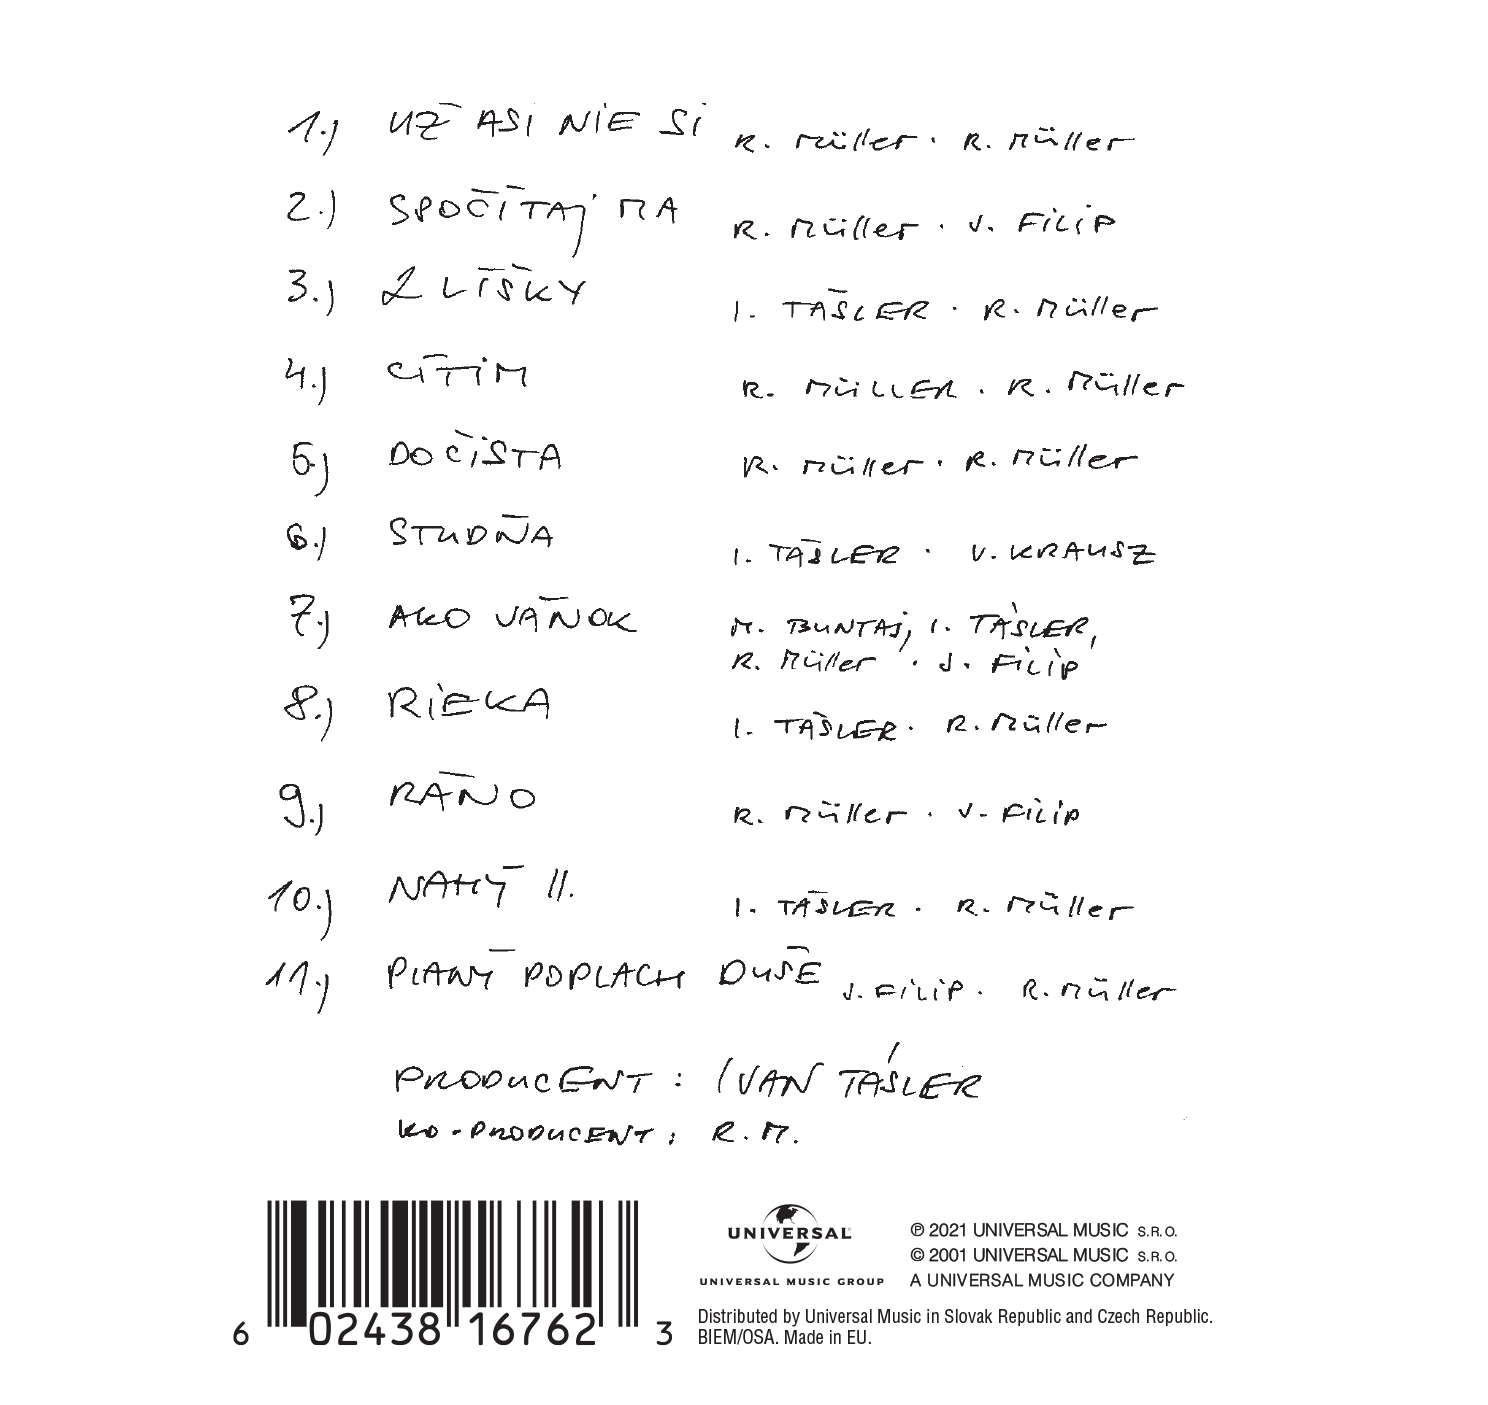 1.) UŽ ASI NIE SI R. Müller · R. Müller
2.) SPOČÍTAJ MA R. Müller · J. FILIP
3.) 2 LÍŠKY I. TÁSLER · R. Müller
4.) CÍTIM R. MÜLLER · R. Müller
5.) DOČISTA R. Müller · R. Müller
6.) STUDŇA I. TÁSLER · V. KRAUSZ
7.) AKO VÁNOK M. BUNTAJ, I. TÁSLER,
R. Müller · J. FILIP
8.) RIEKA I. TÁSLER · R. Müller
9.) RÁNO R. Müller · J. FILIP
10.) NAHÝ II. I. TÁSLER · R. Müller
11.) PLANÝ POPLACH DUŠE J. FILIP · R. Müller
PRODUCENT : IVAN TÁSLER
KO-PRODUCENT : R.M.
6 02438 16762 3
UNIVERSAL
UNIVERSAL MUSIC GROUP
℗ 2021 UNIVERSAL MUSIC S.R.O.
© 2001 UNIVERSAL MUSIC S.R.O.
A UNIVERSAL MUSIC COMPANY
Distributed by Universal Music in Slovak Republic and Czech Republic.
BIEM/OSA. Made in EU.